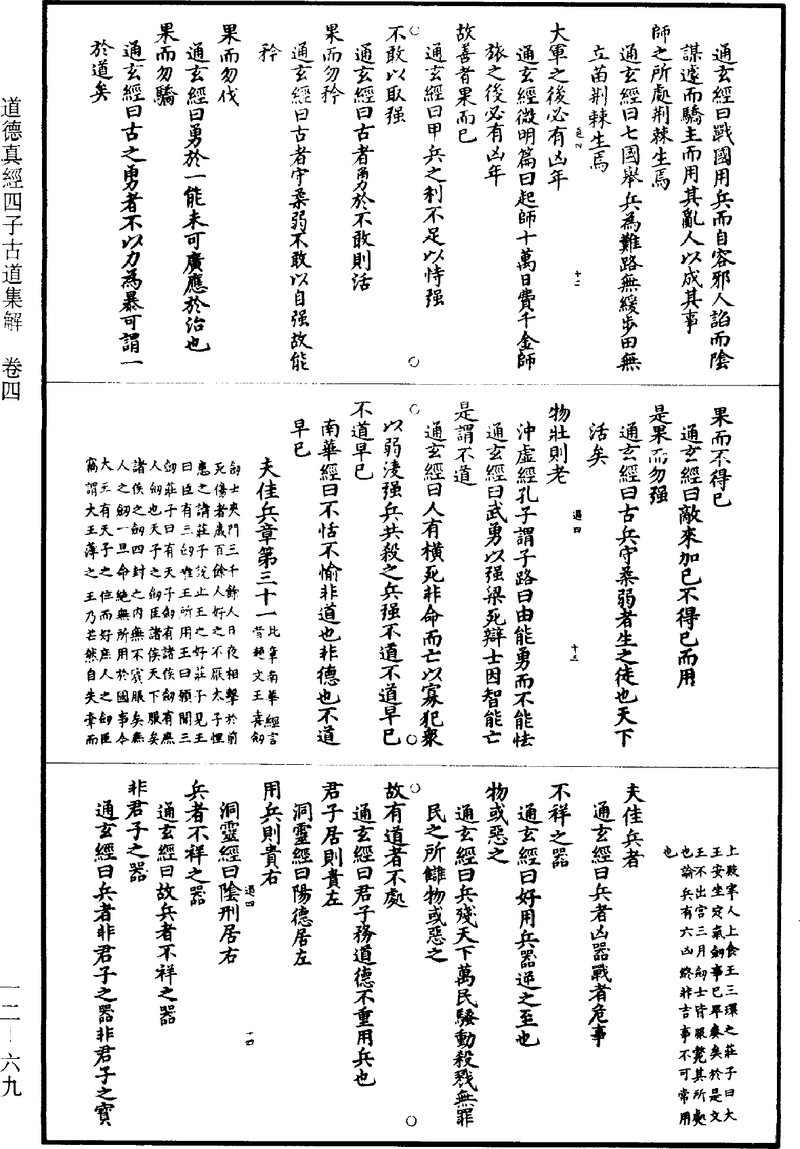 道德真經四子古道集解　卷四
一二—六九
通玄經曰戰國用兵而自容邪人諂而陰
謀遽而驕主而用其亂人以成其事
師之所處荆棘生焉
通玄經曰七國舉兵為難路無緩步田無
立苗荆棘生焉
大軍之後必有凶年
通玄經微明篇曰起師十萬日費千金師
旅之後必有凶年
故善者果而已
通玄經曰甲兵之利不足以恃强
不敢以取强
通玄經曰古者勇於不敢則活
果而勿矜
通玄經曰古者守柔弱不敢以自强故能
矜
果而勿伐
通玄經曰勇於一能未可廣應於治也
果而勿驕
通玄經曰古之勇者不以力為暴可謂一
於道矣
果而不得已
通玄經曰敵來加已不得已而用
是果而勿强
通玄經曰古兵守柔弱者生之徒也天下
活矣
物壯則老
沖虛經孔子謂子路曰由能勇而不能怯
通玄經曰武勇以强梁死辯士因智能亡
是謂不道
通玄經曰人有橫死非命而亡以寡犯衆
以弱淩强兵共殺之兵强不道不道早已
不道早已
南華經曰不恬不愉非道也非德也不道
早已
夫佳兵章第三十一
此章南華經言
昔趙文王喜劒
劒士夾門三千餘人日夜相擊於前
死傷者歲百餘人好之不厭太子悝
患之請莊子說止王之好莊子見王
曰臣有三劒唯王所用王曰願聞三
劒莊子曰有天子劒有諸侯劒有庶
人劒也天子之劒匡諸侯天下服矣
諸侯之劒四封之内無不賓服矣庶
人之劒一旦命絶無所用於國事今
大王有天子之位而好庶人之劒臣
竊謂大王薄之王乃芒然自失牽而
上殿宰人上食王三環之莊子曰大
王安坐定氣劒事已畢奏矣於是文
王不出宮三月劒士皆服斃其所處
也論兵有六凶終非吉事不可常用
也
夫佳兵者
通玄經曰兵者凶器戰者危事
不祥之器
通玄經曰好用兵器逆之至也
物或惡之
通玄經曰兵殘天下萬民騷動殺戮無罪
民之所讎物或惡之
故有道者不處
通玄經曰君子務道德不重用兵也
君子居則貴左
洞靈經曰陽德居左
用兵則貴右
洞靈經曰陰刑居右
兵者不祥之器
通玄經曰故兵者不祥之器
非君子之器
通玄經曰兵者非君子之器非君子之寳